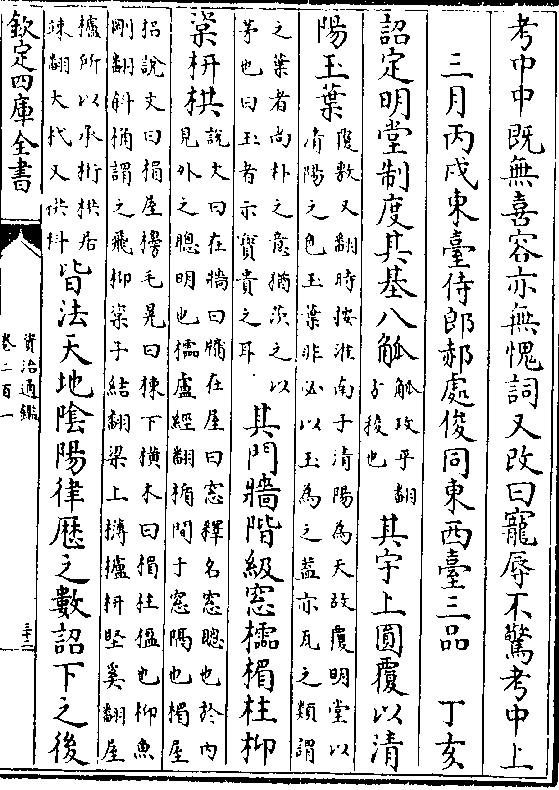 考中中既無喜容亦無愧詞又改曰寵辱不驚考中上
三月丙戌東臺侍郎郝處俊同東西臺三品　丁亥
詔定明堂制度其基八觚觚攻乎翻方稜也其宇上圓覆以清
陽玉葉覆敷又翻時按淮南子清陽為天故覆明堂以清陽之色玉葉非必以玉為之葢亦瓦之類謂
之葉者尚朴之意猶茨之以茅也曰玉者示寶貴之耳其門牆階級窓櫺楣柱枊
楶枅栱說文曰在牆曰牖在屋曰窓釋名窓聰也於内見外之聰明也櫺盧經翻楯間子窓隔也楣屋
梠說文曰楣屋櫋毛晃曰棟下横木曰楣柱楹也枊魚剛翻斜桷謂之飛枊楶子結翻梁上欂櫨枅堅奚翻屋
櫨所以承桁栱居竦翻大杙又供料皆法天地隂陽律歴之數詔下之後
欽定四庫全書
資治通鑑
卷二百一
三十二